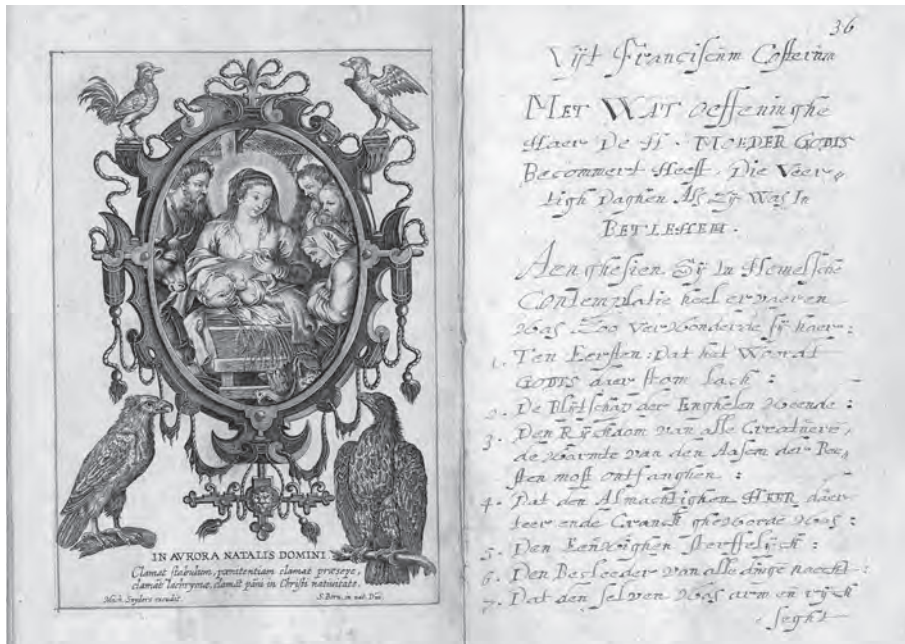 IN AVRORA NATALIS DOMINI
Clamat stabulum, pœnitentiam clamat præsepe,
clamãt lachrymæ, clamãt pãni in Christi natiuitate.
Mich. Snyders excudit.
S. Bern. in nat. Dni.
36
Vijt Franciscum Costerum
MET WAT oeffeninghe
Haer De H. MOEDER GODTS
Becommert Heeft. Die Veer
tigh Daghen Als Zij Was In
BETLEHEM.
Aenghesien Sij In Hemelsche
Contemplatie heel ervaeren
Was Zoo Verwonderde sij haer:
1. Ten Eersten: Dat het Woordt
GODTS daer stom lach:
2. De Blijtschap der Enghelen Weende:
3. Den Rijckdom van alle Creatuere,
de Warmte van den Aasem der Bee,
sten most ontfanghen:
4. Dat den Almachtighen HEER daer
teer ende Cranck gheworde Was:
5. Den Eeuwighen sterffelijck:
6. Den Becleeder van alle dinge naeckt:
7. Dat den selven Was arm en rijck
seght